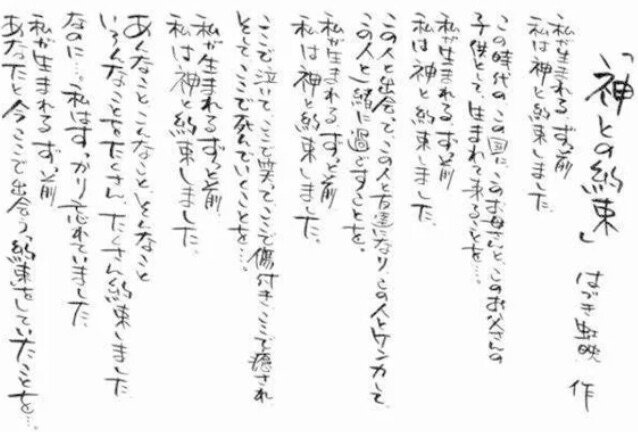 「神との約束」 はづき虹映 作
私が生まれる ずっと前
私は神と約束しました
この時代の この国に このお母さんと、このお父さんの
子供として、生まれて来ることを…。
私が生まれる ずっと前
私は 神と約束しました
この人と出会って、この人と友達になり、この人とケンカして、
この人と一緒に過ごすことを。
私が生まれる ずっと前
私は 神と約束しました。
ここで泣いて、ここで笑って、ここで傷付き、ここで癒され
そして、ここで死んでいくことを…。
私が生まれる ずっと前
私は 神と約束しました。
あんなこと こんなこと そんなこと
いろんなことを たくさん、たくさん約束しました
なのに…。私はすっかり忘れていました。
私が生まれる ずっと前
あなたと今、ここで出会う、約束をしていたことを…。